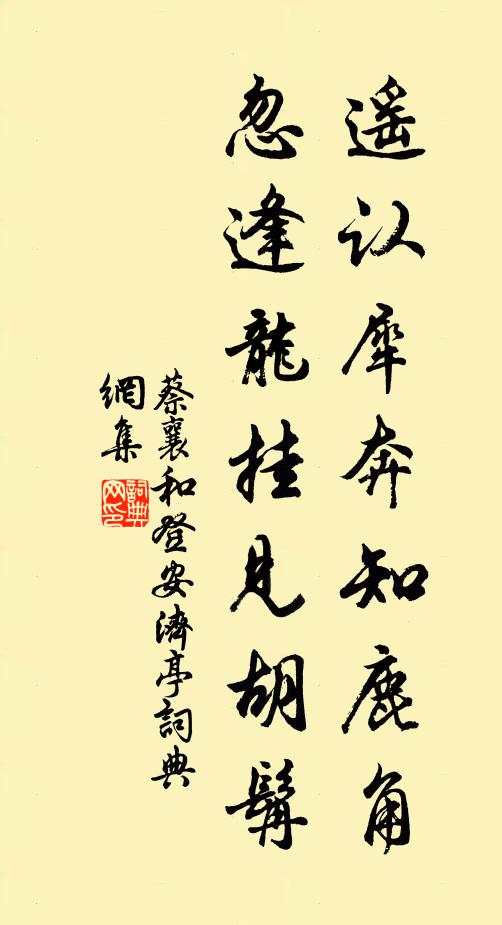 遥认犀奔知鹿角
忽逢龍挂見胡髯
蔡襄和登安濟亭詞典
網集
詞典
网印